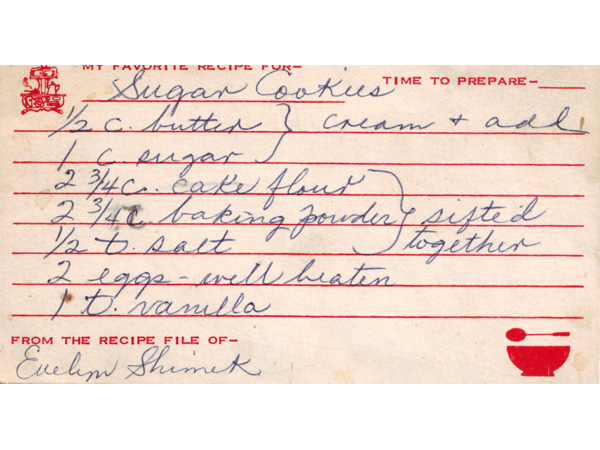 MY FAVORITE RECIPE FOR-
Sugar Cookies
TIME TO PREPARE-
1/2 c. butter } cream + add
1 c. sugar
2 3/4 c. cake flour
2 3/4 c. baking powder } sifted
1/2 t. salt together
2 eggs - well beaten
1 t. vanilla
FROM THE RECIPE FILE OF-
Evelyn Shimek